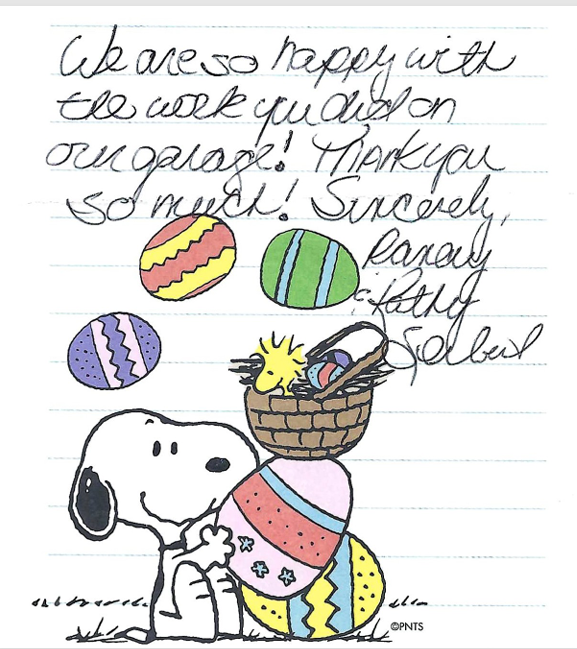 We are so happy with
the work you did on
our garage! Thank you
so much! Sincerely,
Randy
& Kathy
©PNTS